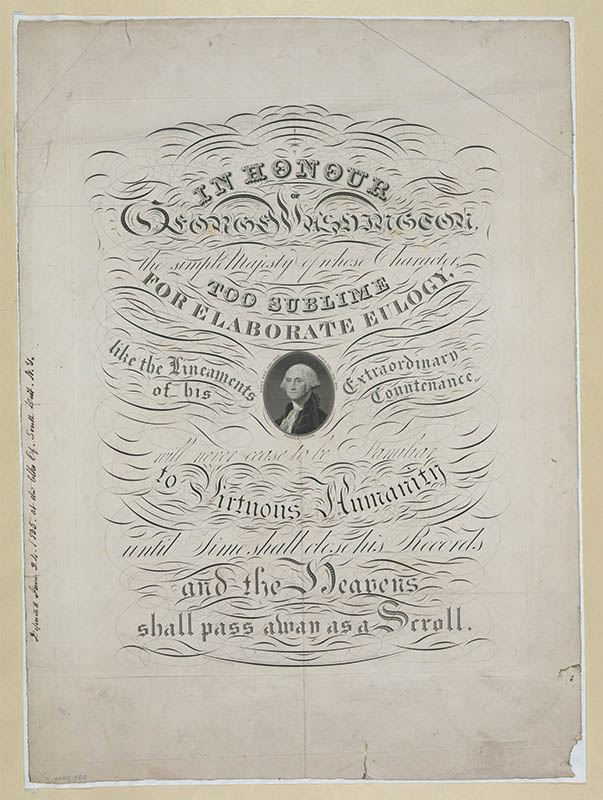 IN HONOUR
OF
GEORGE WASHINGTON,
the simple Majesty of whose Character,
TOO SUBLIME
FOR ELABORATE EULOGY,
like the Lineaments
of his
Extraordinary
Countenance,
will never cease to be Familiar
to Virtuous Humanity
until Time shall close his Records
and the Heavens
shall pass away as a Scroll.
Deposited June 24. 1845. at the Clks Of. South. Dist. N.Y.